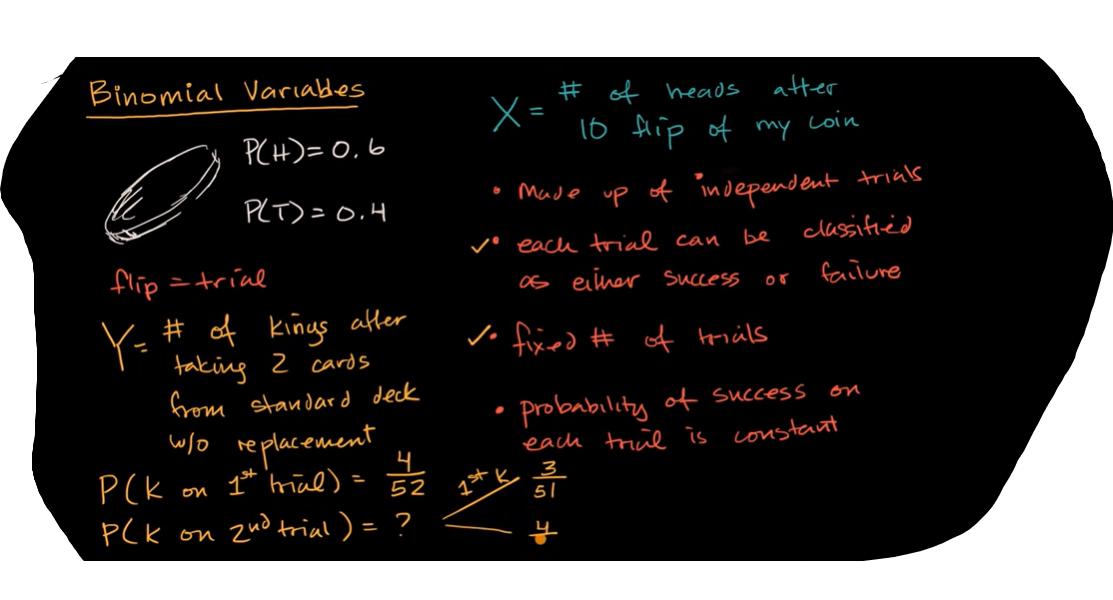 Binomial Variables
P(H) = 0.6
P(T) = 0.4
flip = trial
Y = # of kings after
taking 2 cards
from standard deck
w/o replacement
P(K on 1st trial) = 4/52
P(K on 2nd trial) = ?
1st K 3/51
4
X = # of heads after
10 flip of my coin
• Made up of independent trials
✓• each trial can be classified
as either success or failure
✓• fixed # of trials
• probability of success on
each trial is constant